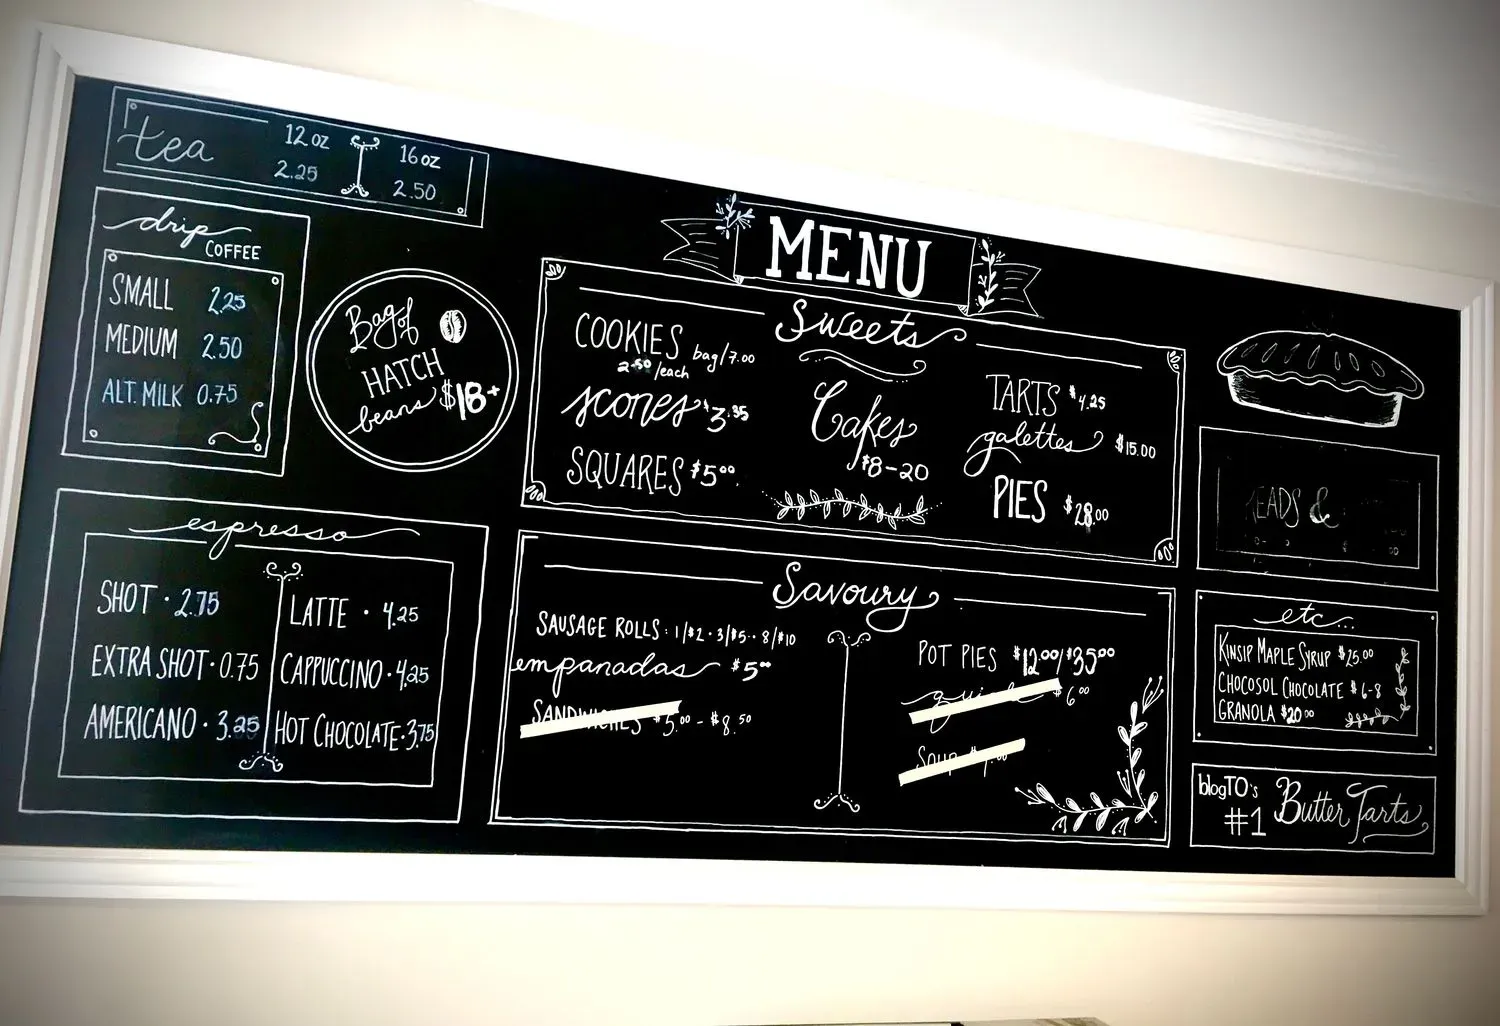 tea
12 oz 16 oz
2.25 2.50
drip
COFFEE
SMALL 2.25
MEDIUM 2.50
ALT. MILK 0.75
Bag of
HATCH
beans $18+
espresso
SHOT · 2.75
EXTRA SHOT · 0.75
AMERICANO · 3.25
LATTE · 4.25
CAPPUCCINO · 4.25
HOT CHOCOLATE · 3.75
MENU
Sweets
COOKIES bag/7.00
2.50/each
scones $3.35
SQUARES $5.00
Cakes
$8-20
TARTS $4.25
galettes $15.00
PIES $28.00
Savoury
SAUSAGE ROLLS: 1/$2 · 3/$5 · 8/$10
empanadas $5.00
SANDWICHES $5.00 - $8.50
POT PIES $12.00/$35.00
quiche $6.00
Soup
EADS &
etc...
KINSIP MAPLE SYRUP $25.00
CHOCOSOL CHOCOLATE $6-8
GRANOLA $20.00
blogTO's
#1 Butter Tarts